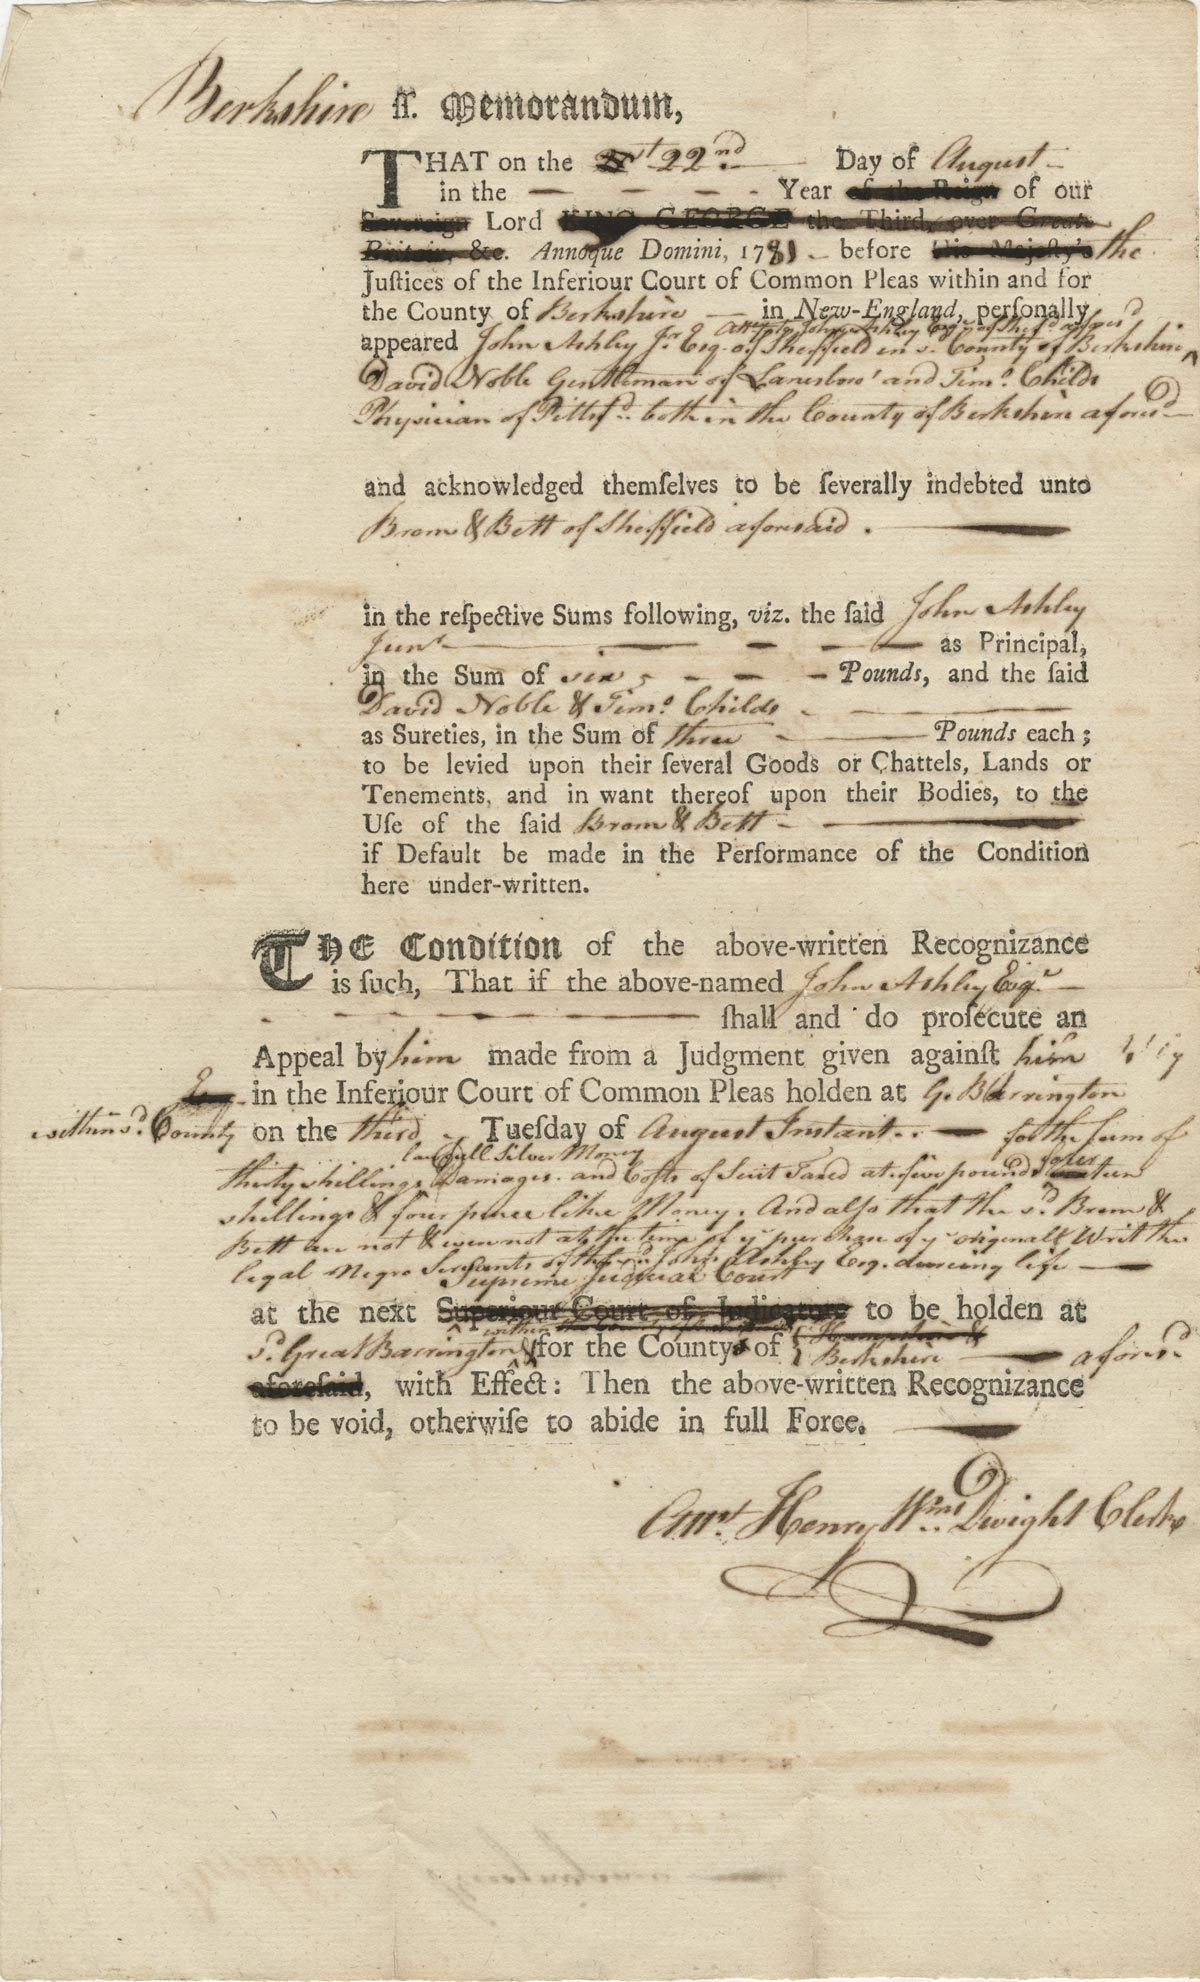 Berkshire ſſ. Memorandum,
THAT on the 22nd. Day of August
in the - - - - Year of the Reign of our
Sovereign Lord KING GEORGE the Third, over Great-
Britain, &c. Annoque Domini, 1781 - before His Majeſty's the
Juſtices of the Inferiour Court of Common Pleas within and for
the County of Berkshire in New-England, perſonally
Attorney to John Ashley Esqr. of Sheffd. afores'd
appeared John Ashley Jr. Esq. of Sheffield in sd. County of Berkshire ^
David Noble Gentleman of Lanesboro' and Timo. Childs
Physician of Pittsfd. both in the County of Berkshire aforesd
and acknowledged themſelves to be ſeverally indebted unto
Brom & Bett of Sheffield aforesaid.
in the reſpective Sums following, viz. the ſaid John Ashley
Junr. - - - as Principal,
in the Sum of six - - - Pounds, and the ſaid
David Noble & Timo. Childs
as Sureties, in the Sum of three - Pounds each;
to be levied upon their ſeveral Goods or Chattels, Lands or
Tenements, and in want thereof upon their Bodies, to the
Uſe of the ſaid Brom & Bett -
if Default be made in the Performance of the Condition
here under-written.
THE Condition of the above-written Recognizance
is ſuch, That if the above-named John Ashley Esqr.
ſhall and do proſecute an
Appeal by him made from a Judgment given againſt him
in the Inferiour Court of Common Pleas holden at G. Barrington
within sd. County on the third Tuesday of August Instant.. for the sum of
lawfull Silver Money
thirty shillings Damages. and Costs of Suit Taxed at five pounds fourteen
shillings & four pence like Money. And also that the sd. Brom &
Bett are not & were not at the time of ye purchase of ye originall Writ the
legal Negro Servants of the sd. John Ashley Esq. during life
Supreme Judicial Court
at the next Superiour Court of Judicature to be holden at
within
sd. Great Barrington & for the County of Hampshire &
Berkshire aforesd
aforeſaid, with Effect: Then the above-written Recognizance
to be void, otherwiſe to abide in full Force.
Attt. Henry Wms Dwight Clerk